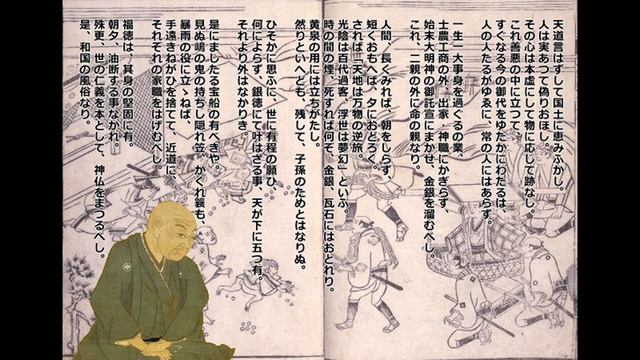 天道言はずして国土に恵みふかし。
人は実あつて偽りおほし。
その心は本虚にして物に応じて跡なし。
これ善悪の中に立つて、
すぐなる今の御代をゆたかにわたるは、
人の人たるがゆゑに、常の人にはあらず。
一生一大事身を過ぐるの業、
士農工商の外、出家・神職にかぎらず、
始末大明神の御託宣にまかせ、金銀を溜むべし。
これ、二親の外に命の親なり。
人間、長くみれば、朝をしらず、
短くおもへば、夕におどろく。
されば「天地は万物の逆旅。
光陰は百代過客、浮世は夢幻」といふ。
時の間の煙、死すれば何ぞ、金銀、瓦石にはおとれり。
黄泉の用には立ちがたし。
然りといへども、残して、子孫のためとはなりぬ。
ひそかに思ふに、世に有程の願ひ、
何によらず、銀徳にて叶はざる事、天が下に五つ有。
それより外はなかりき。
是にましたる宝船の有べきや。
見ぬ嶋の鬼の持ちし隠れ笠、かくれ簑も、
暴雨の役に立ゝねば、
手遠きねがひを捨てて、近道に、
それぞれの家職をはげむべし。
福徳は、其身の堅固に有。
朝夕、油断する事なかれ。
殊更、世の仁義を本として、神仏をまつるべし。
是、和国の風俗なり。